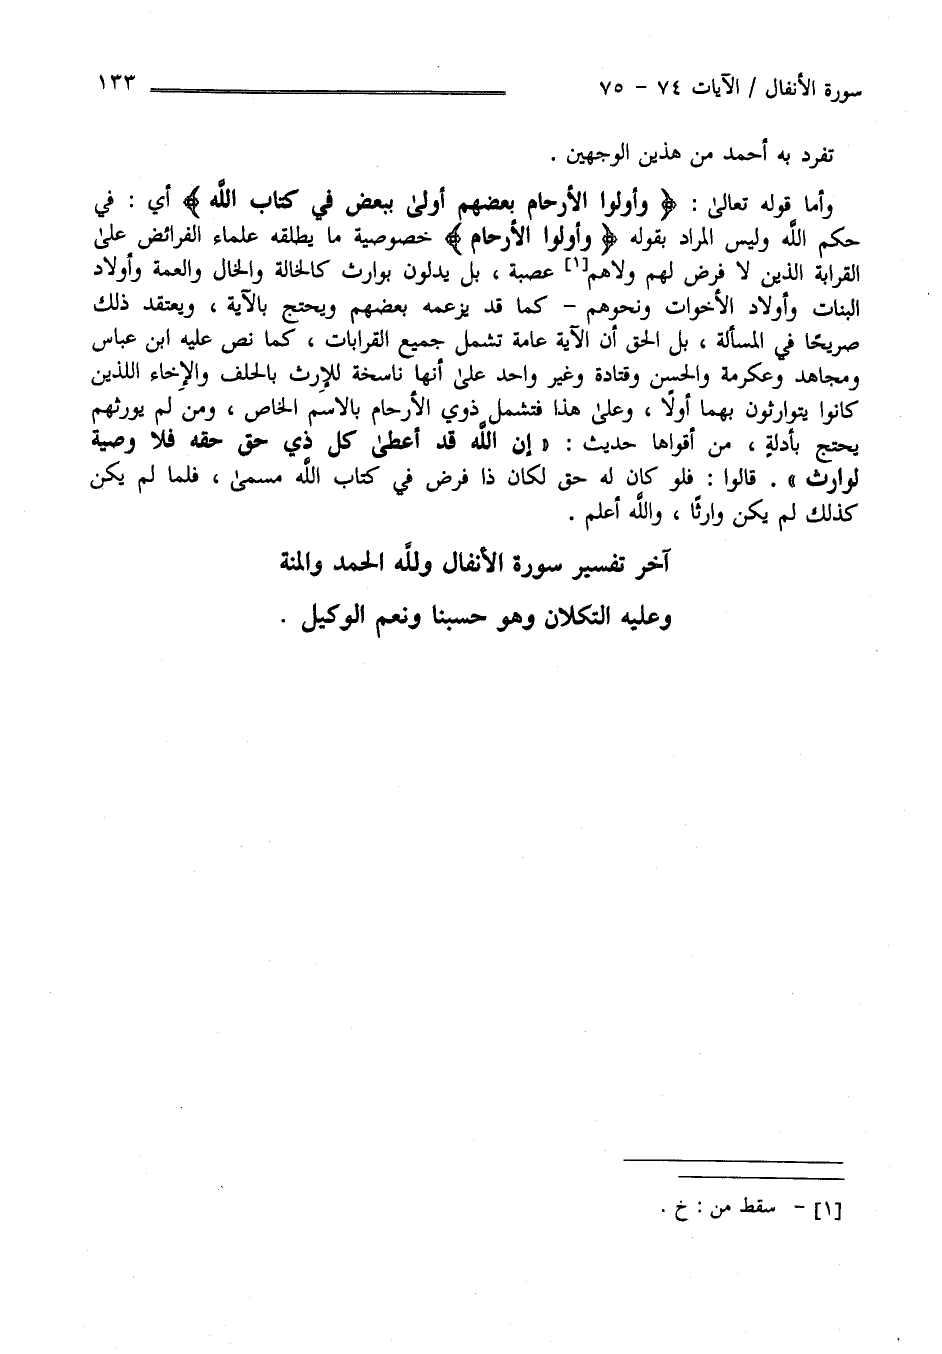 سورة الأنفال / الآيات ٧٤ - ٧٥ ١٣٣
تفرد به أحمد من هذين الوجهين .
وأما قوله تعالىٰ : ﴿ وأولوا الأرحام بعضهم أولىٰ ببعض في كتاب اللَّه ﴾ أي : في
حكم اللَّه وليس المراد بقوله ﴿ وأولوا الأرحام ﴾ خصوصية ما يطلقه علماء الفرائض علىٰ
القرابة الذين لا فرض لهم ولاهم[١] عصبة ، بل يدلون بوارث كالخالة والخال والعمة وأولاد
البنات وأولاد الأخوات ونحوهم – كما قد يزعمه بعضهم ويحتج بالآية ، ويعتقد ذلك
صريحًا في المسألة ، بل الحق أن الآية عامة تشمل جميع القرابات ، كما نص عليه ابن عباس
ومجاهد وعكرمة والحسن وقتادة وغير واحد علىٰ أنها ناسخة للإرث بالحلف والإخاء اللذين
كانوا يتوارثون بهما أولًا ، وعلىٰ هذا فتشمل ذوي الأرحام بالاسم الخاص ، ومن لم يورثهم
يحتج بأدلةٍ ، من أقواها حديث : « إن اللَّه قد أعطىٰ كل ذي حق حقه فلا وصية
لوارث » . قالوا : فلو كان له حق لكان ذا فرض في كتاب اللَّه مسمىٰ ، فلما لم يكن
كذلك لم يكن وارثًا ، واللَّه أعلم .
آخر تفسير سورة الأنفال وللَّه الحمد والمنة
وعليه التكلان وهو حسبنا ونعم الوكيل .
[١] – سقط من : خ .